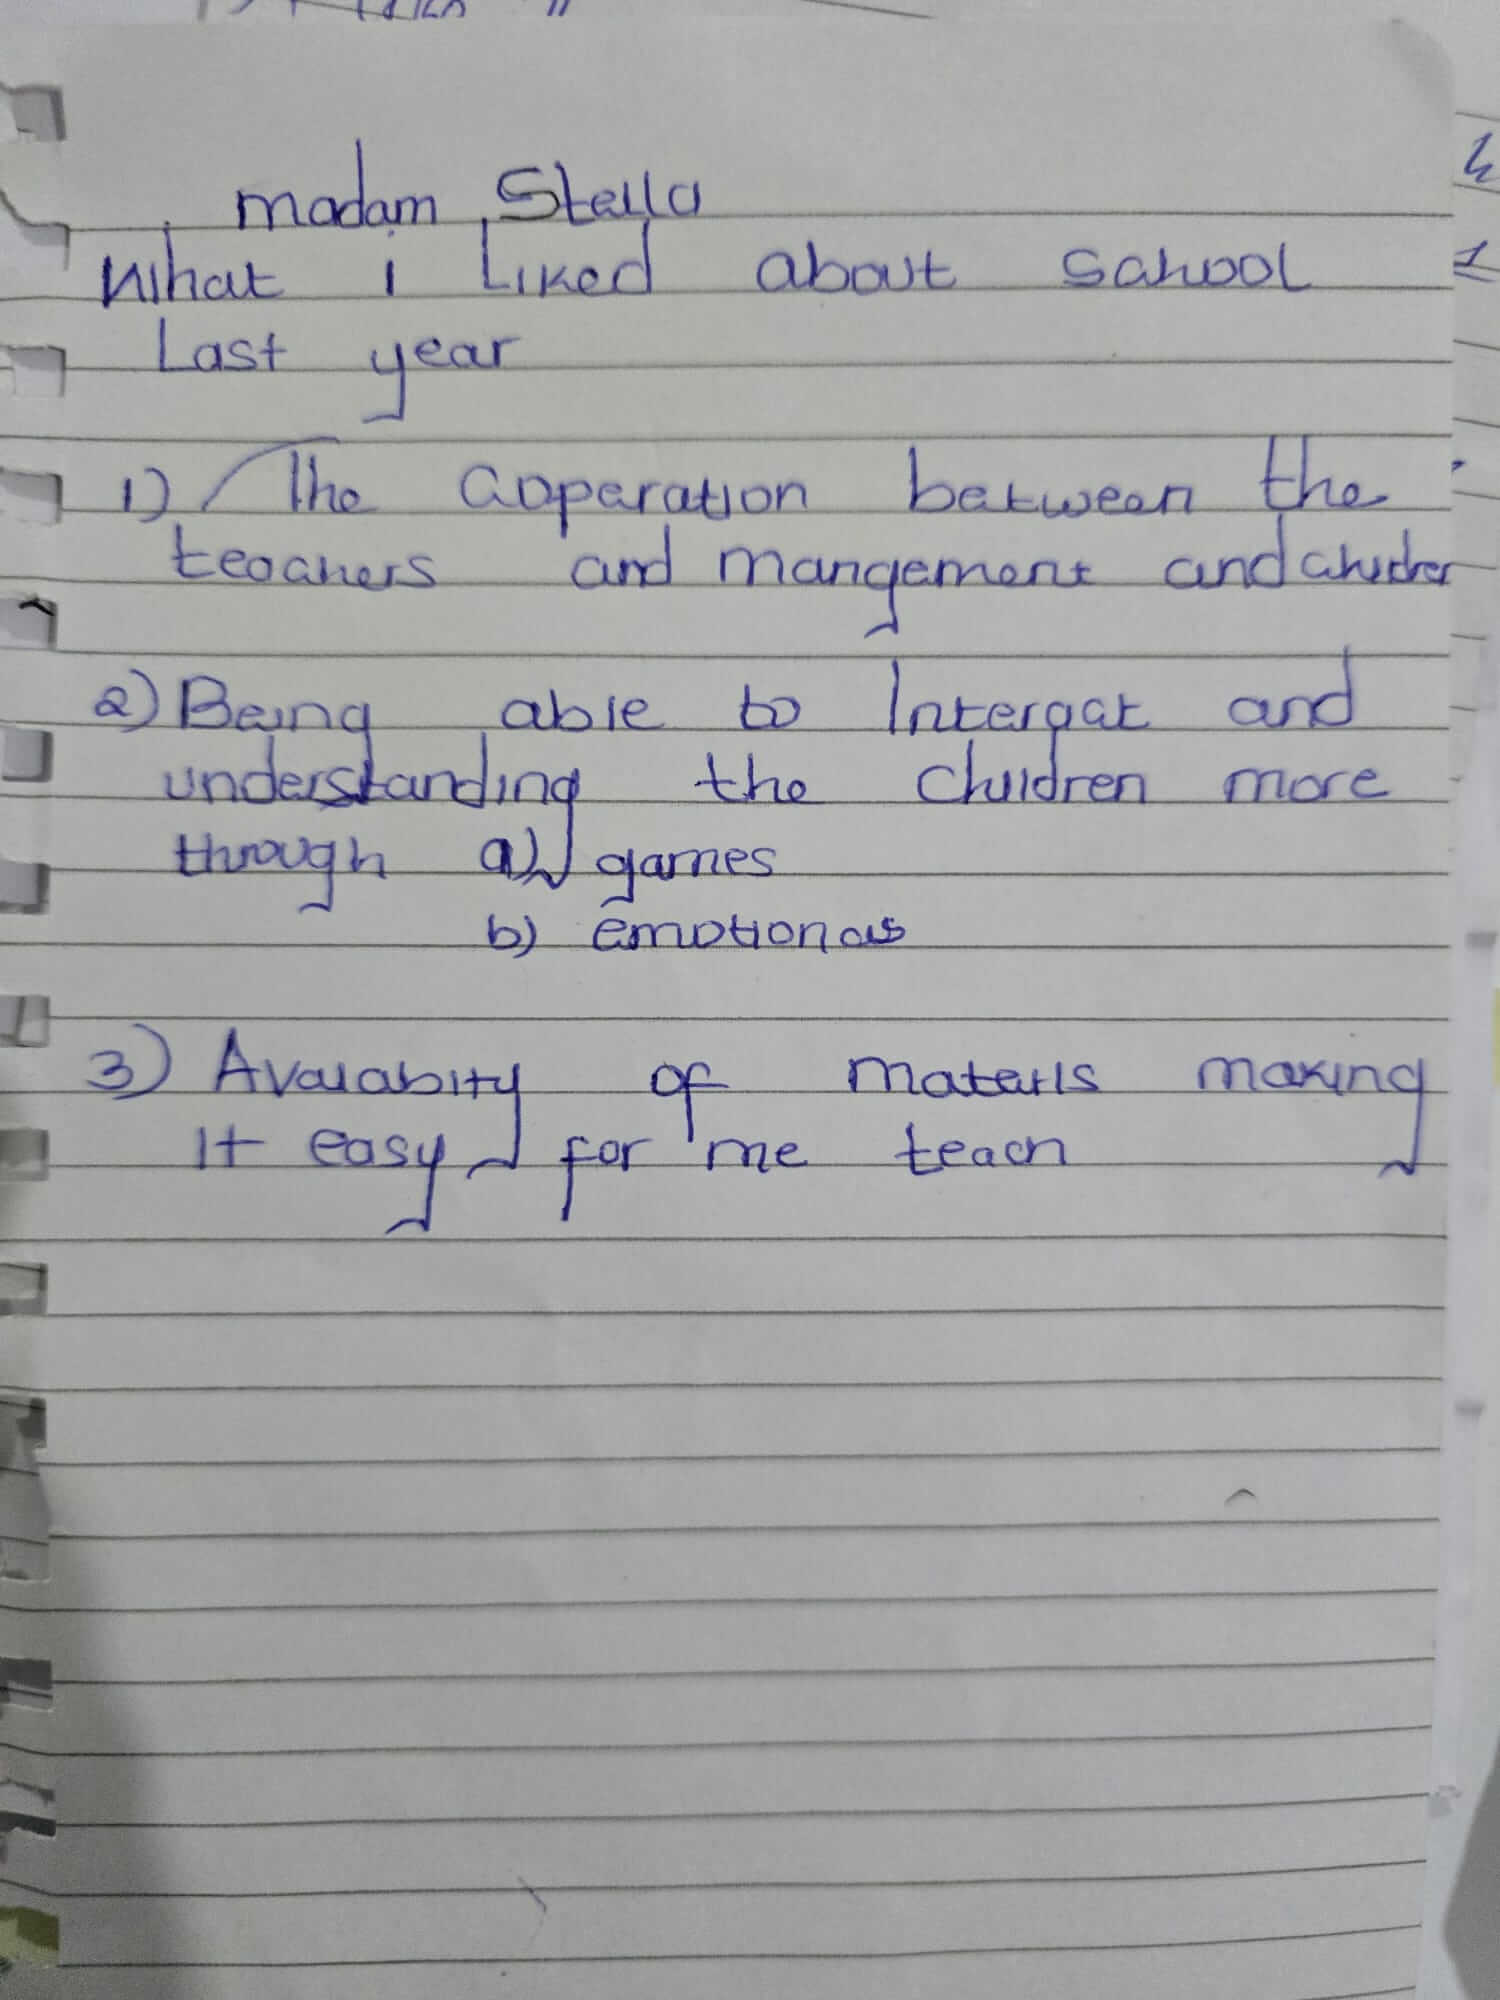 madam Stella
What i Liked about school
Last year
1) The Coperation between the
teachers and mangement and children
2) Being able to Intergat and
understanding the children more
through a) games
b) emotionals
3) Avalabity of materils making
It easy for me teach